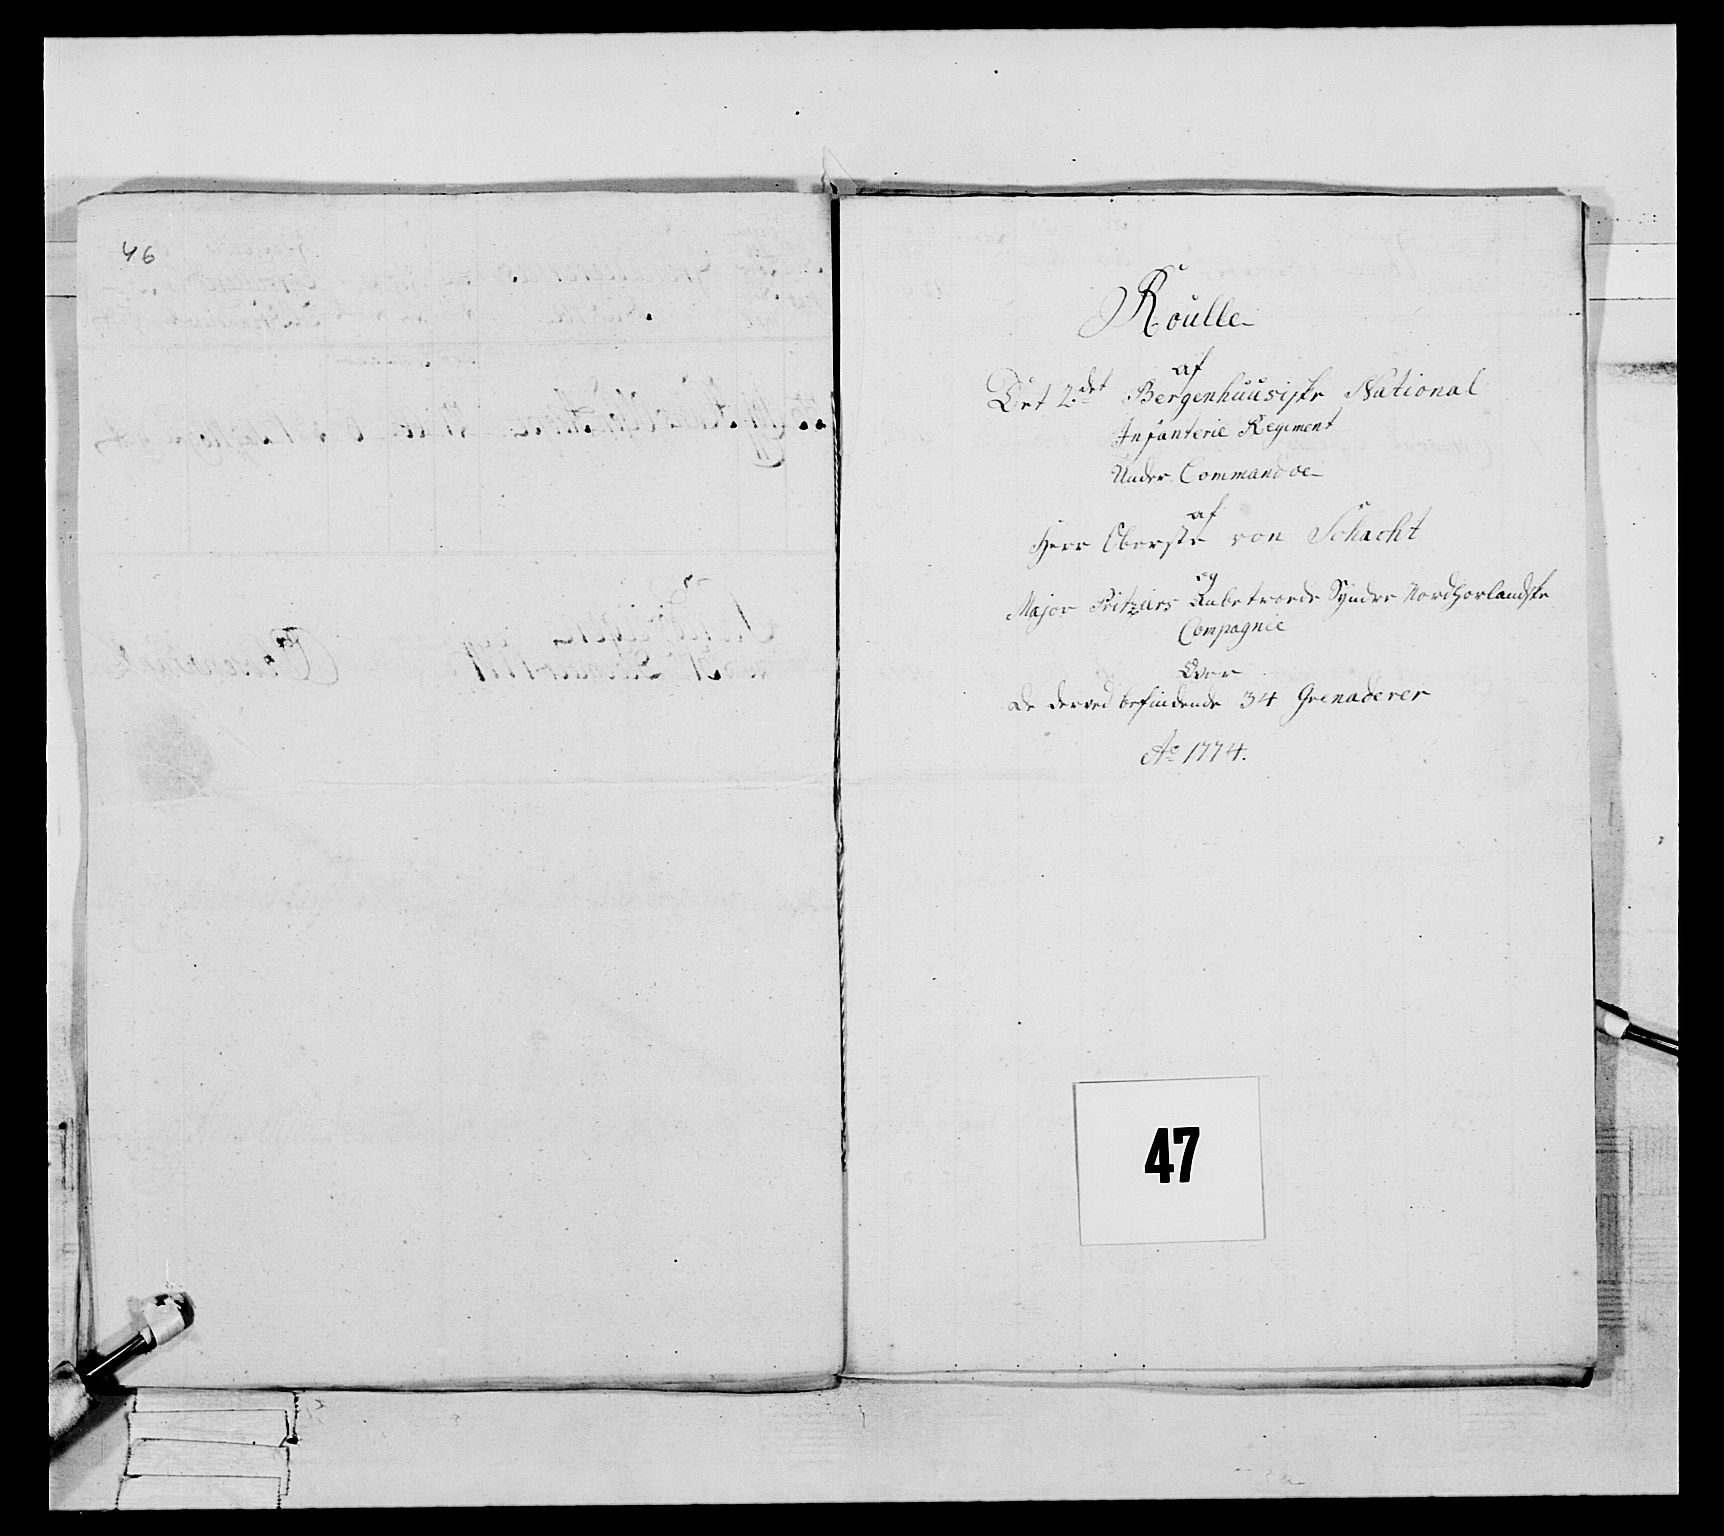 46
Roulle
af
Det 2.det Bergenhuusiske National
Infanterie Regiment
Under Commandoe
af
Herr Oberste von Schacht
og
Major Fritzners Anbetroede Syndre Nordhorlandske
Compagnie
Over
De derved befindende 34 Grenaderer
Ao 1774.
47